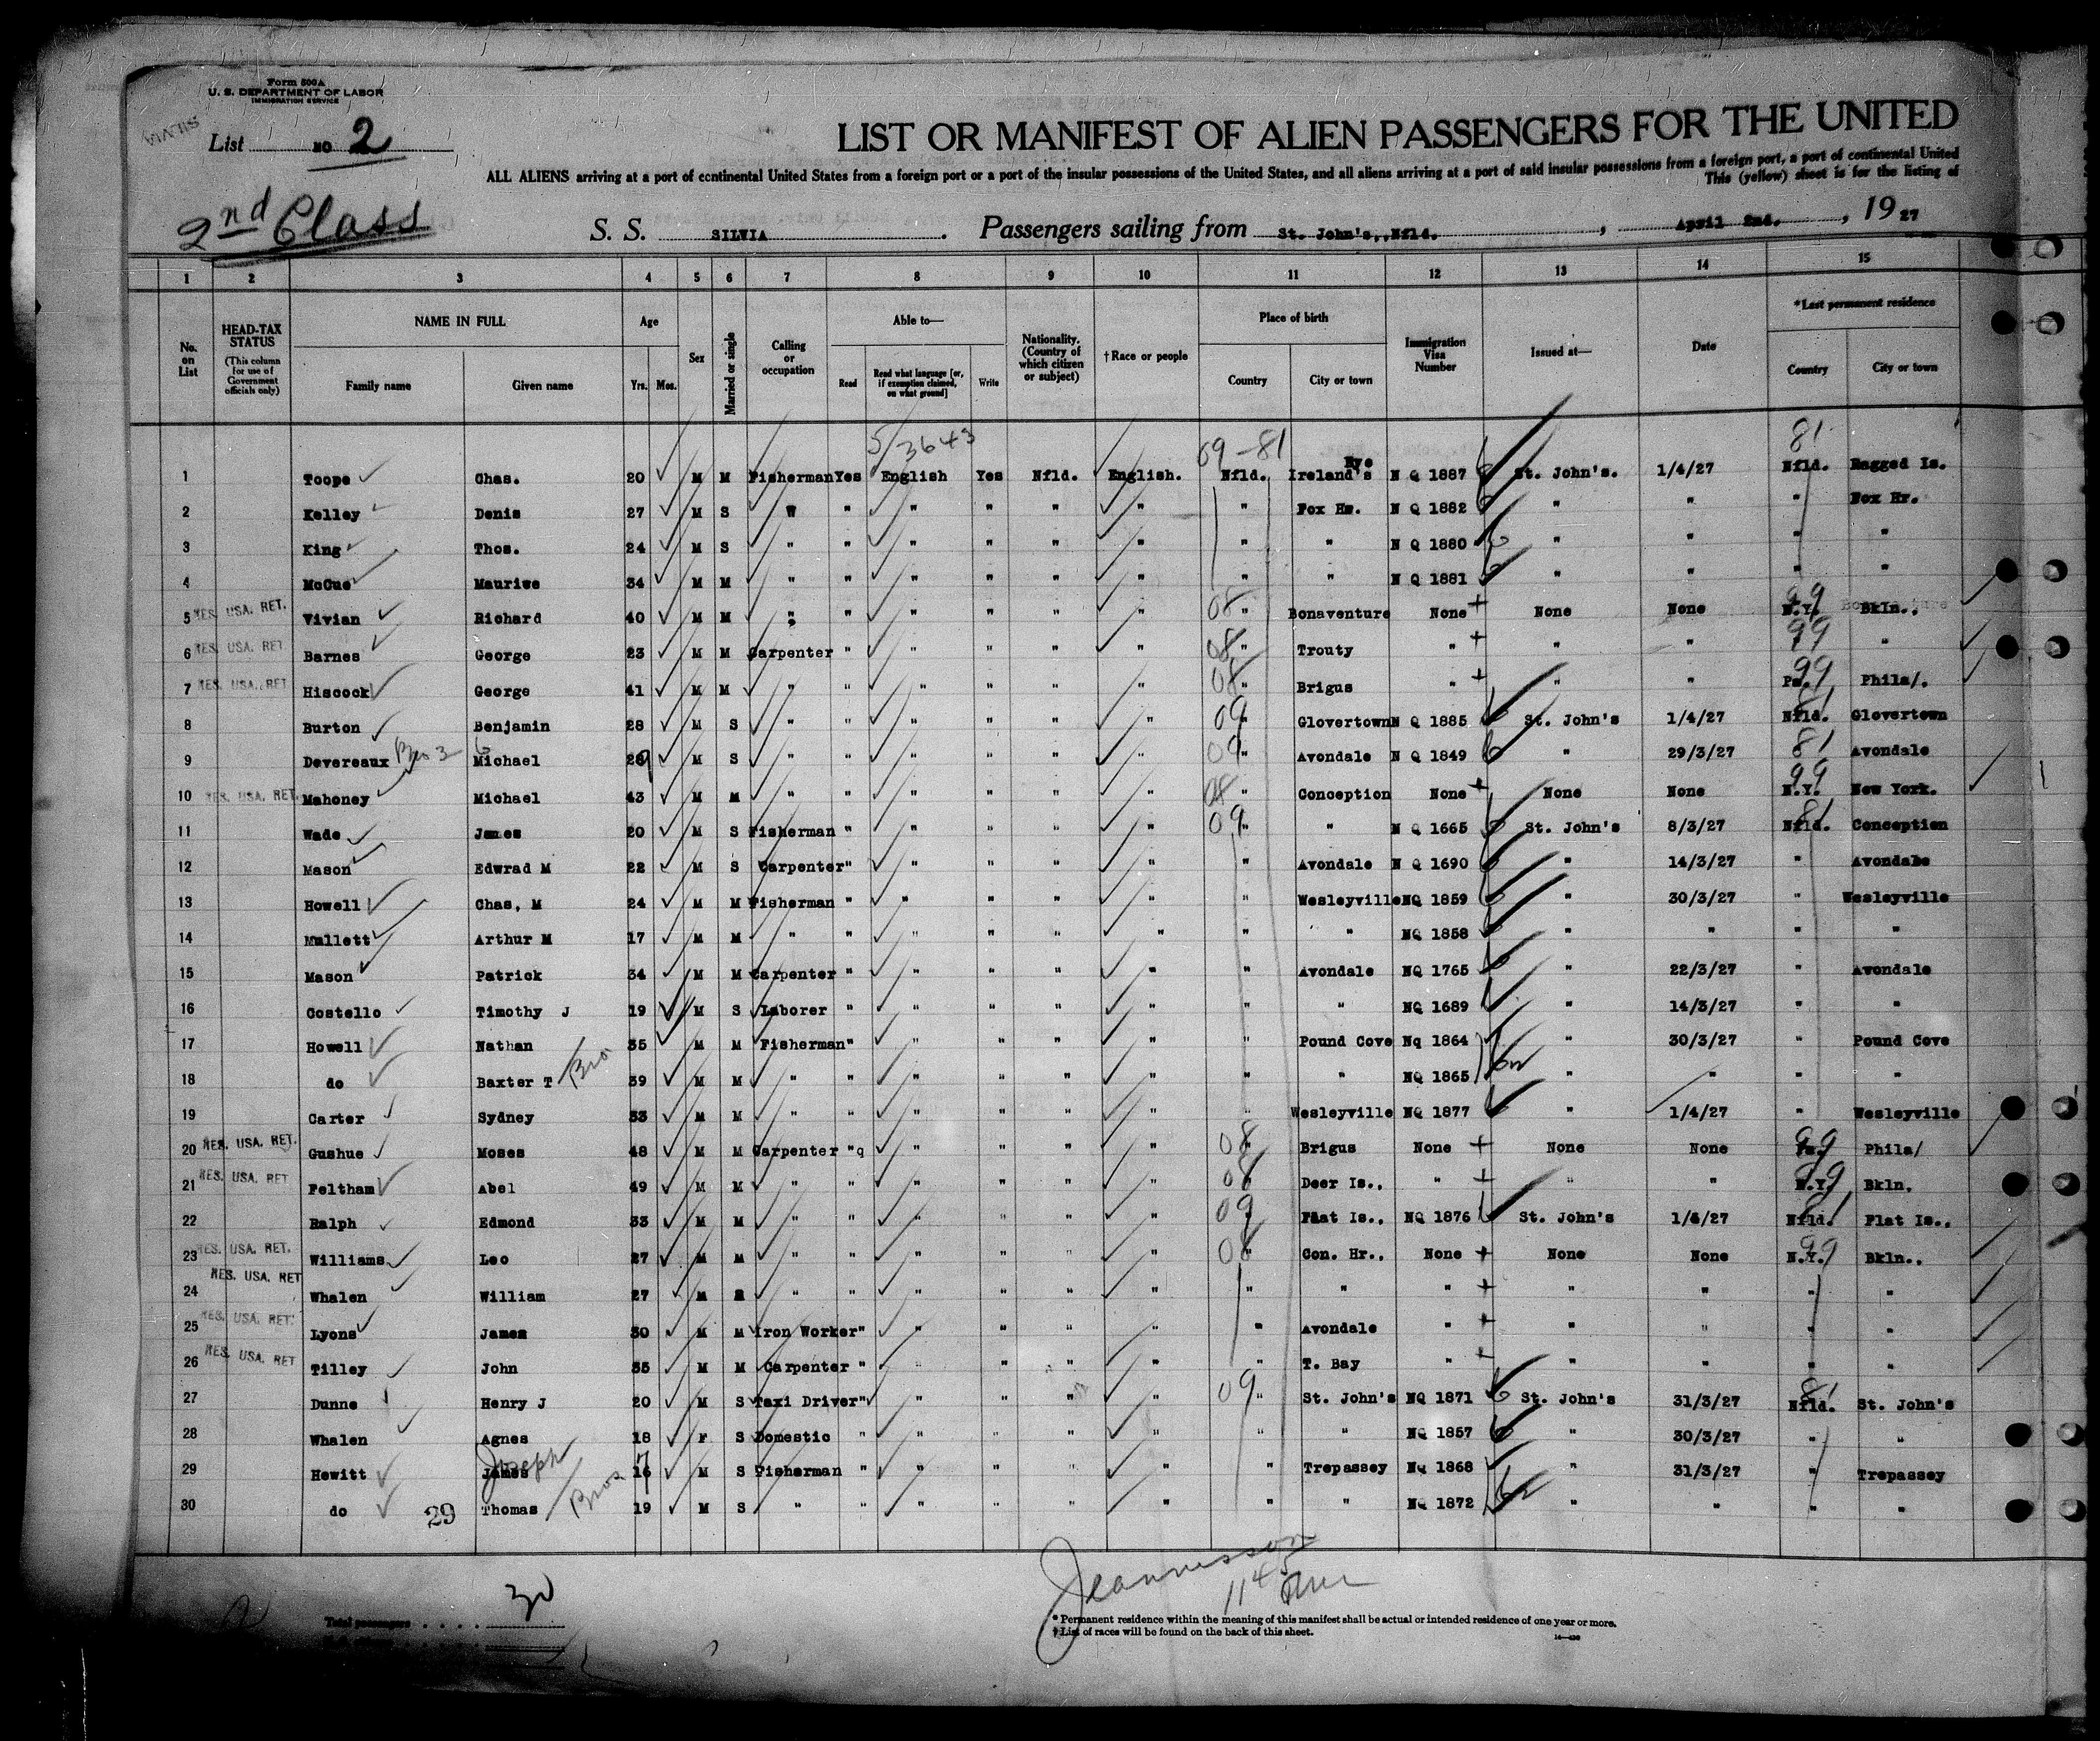 Form 500A
U. S. DEPARTMENT OF LABOR
IMMIGRATION SERVICE
SILVIA
List NO 2
LIST OR MANIFEST OF ALIEN PASSENGERS FOR THE UNITED
ALL ALIENS arriving at a port of continental United States from a foreign port or a port of the insular possessions of the United States, and all aliens arriving at a port of said insular possessions from a foreign port, a port of continental United
This (yellow) sheet is for the listing of
2nd Class
S. S. SILVIA. Passengers sailing from St. John's,,Nfld., April 2nd., 1927
1 2 3 4 5 6 7 8 9 10 11 12 13 14 15
No. on List
HEAD-TAX STATUS (This column for use of Government officials only)
NAME IN FULL Family name Given name
Age Yrs. Mos.
Sex
Married or single
Calling or occupation
Able to— Read Read what language [or, if exemption claimed, on what ground] Write
Nationality. (Country of which citizen or subject)
†Race or people
Place of birth Country City or town
Immigration Visa Number
Issued at—
Date
*Last permanent residence Country City or town
5/3643 09-81 81
1 Toope Chas. 20 M M Fisherman Yes English Yes Nfld. English. Nfld. Ireland's Eye N Q 1887 St. John's. 1/4/27 Nfld. Ragged Is.
2 Kelley Denis 27 M S " " " " " " " Fox Hr. N Q 1882 " " " Fox Hr.
3 King Thos. 24 M S " " " " " " " " N Q 1880 " " " "
4 McCue Maurice 34 M M " " " " " " " " N Q 1881 " " " "
5 RES. USA. RET. Vivian Richard 40 M M " " " " " " 08 " Bonaventure None + None None 99 N.Y. Bkln.,
6 RES. USA. RET Barnes George 23 M M Carpenter " " " " " 08 " Trouty " + " " 99 "
7 RES. USA. RET Hiscock George 41 M M " " " " " " 08 " Brigus " + " " 99 Pa. Phila/.
8 Burton Benjamin 28 M S " " " " " " 09 " Glovertown N Q 1885 St. John's 1/4/27 81 Nfld. Glovertown
9 Devereaux Bro 3 Michael 28 9 M S " " " " " " 09 " Avondale N Q 1849 " 29/3/27 81 Avondale
10 RES. USA. RET. Mahoney Michael 43 M M " " " " " " 08 " Conception None + None None 99 N.Y. New York.
11 Wade James 20 M S Fisherman " " " " " 09 " " N Q 1665 St. John's 8/3/27 81 Nfld. Conception
12 Mason Edwrad M 22 M S Carpenter " " " " " " Avondale N Q 1690 " 14/3/27 " Avondale
13 Howell Chas, M 24 M M Fisherman " " " " " " Wesleyville NQ 1859 " 30/3/27 " Wesleyville
14 Mullett Arthur M 17 M M " " " " " " " " NQ 1858 " " " "
15 Mason Patrick 34 M M Carpenter " " " " " " Avondale NQ 1765 " 22/3/27 " Avondale
16 Costello Timothy J 19 M S Laborer " " " " " " " NQ 1689 " 14/3/27 " "
17 Howell Nathan 35 M M Fisherman " " " " " " Pound Cove Nq 1864 " 30/3/27 " Pound Cove
18 do Baxter T Bro 39 M M " " " " " " " " NQ 1865 " " " "
19 Carter Sydney 33 M M " " " " " " " Wesleyville NQ 1877 " 1/4/27 " Wesleyville
20 RES. USA. RET. Gushue Moses 48 M M Carpenter "q " " " " 08 " Brigus None + None None 99 Pa. Phila/
21 RES. USA. RET Feltham Abel 49 M M " " " " " " 08 " Deer Is., " + " " 99 N.Y. Bkln.
22 Ralph Edmond 33 M M " " " " " " 09 " Flat Is., NQ 1876 St. John's 1/4/27 81 Nfld. Flat Is.,
23 RES. USA. RET. Williams Leo 27 M M " " " " " " 08 " Con. Hr., None + None None 99 N.Y. Bkln.,
24 RES. USA. RET Whalen William 27 M " " " " " " " " " + " " " "
25 RES. USA. RET. Lyons James 30 M M Iron Worker " " " " " " Avondale " + " " " "
26 RES. USA. RET Tilley John 35 M M Carpenter " " " " " " T. Bay " " " " "
27 Dunne Henry J 20 M S Taxi Driver " " " " " 09 " St. John's NQ 1871 St. John's 31/3/27 81 Nfld. St. John's
28 Whalen Agnes 18 F S Domestic " " " " " " " NQ 1857 " 30/3/27 " "
29 Hewitt James Joseph 16 7 M S Fisherman " " " " " " Trepassey Nq 1868 " 31/3/27 " Trepassey
30 do 29 Thomas Bros 19 M S " " " " " " " " NQ 1872 " " " "
Total passengers . . . . 30
1145
* Permanent residence within the meaning of this manifest shall be actual or intended residence of one year or more.
† List of races will be found on the back of this sheet.